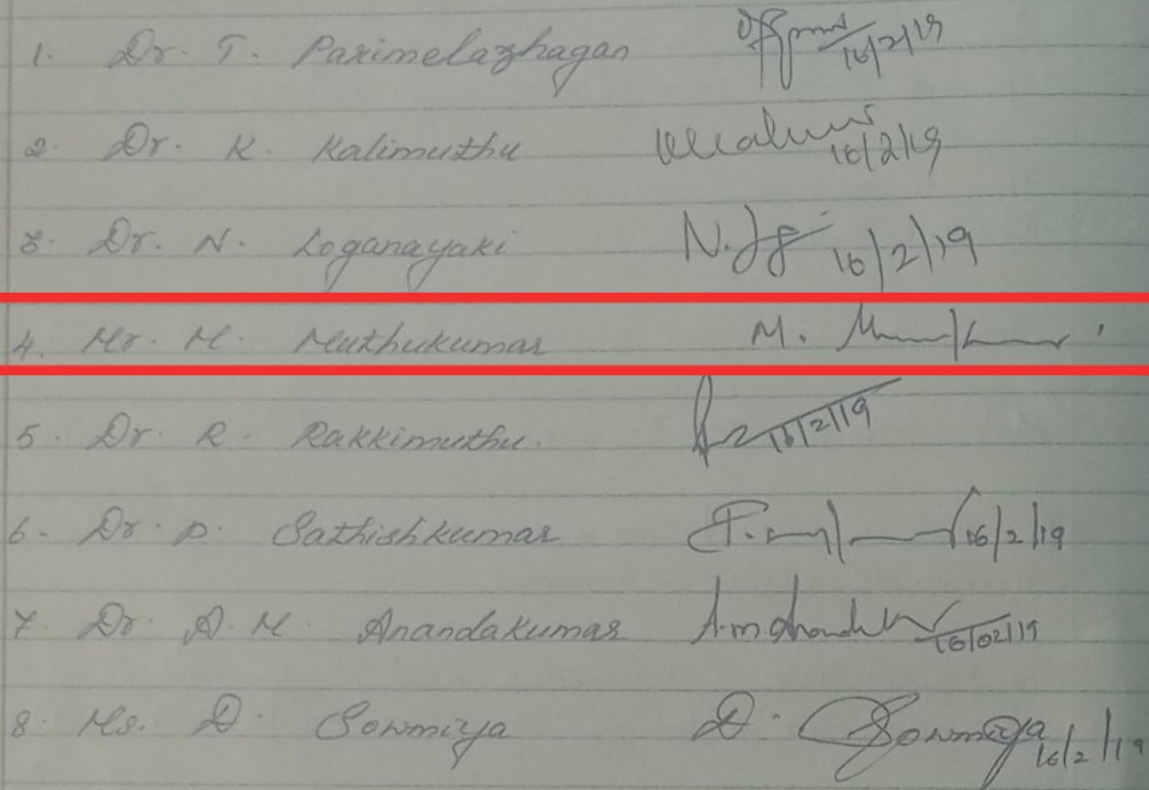 1. Dr. T. Parimelazhagan 16/2/19
2. Dr. K. Kalimuthu 16/2/19
3. Dr. N. Loganayaki N. 16/2/19
4. Mr. M. Muthukumar M.
5. Dr. R. Rakkimuthu. 16/2/19
6. Dr. P. Sathishkumar P. 16/2/19
7. Dr. A. M. Anandakumar 16/02/19
8. Ms. D. Sowmiya D. Sowmiya 16/2/19